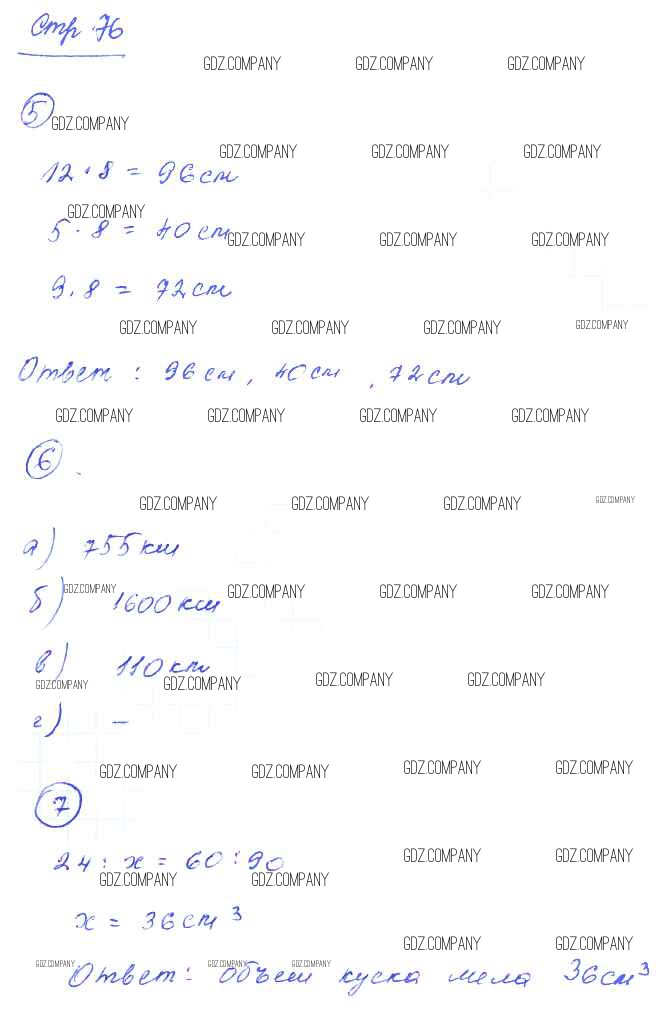 Стр 76
GDZ.COMPANY GDZ.COMPANY GDZ.COMPANY
5
GDZ.COMPANY
GDZ.COMPANY GDZ.COMPANY GDZ.COMPANY
12 · 8 = 96 см
GDZ.COMPANY
5 · 8 = 40 см
GDZ.COMPANY GDZ.COMPANY GDZ.COMPANY
9 · 8 = 72 см
GDZ.COMPANY GDZ.COMPANY GDZ.COMPANY GDZ.COMPANY
Ответ : 96 см, 40 см , 72 см
GDZ.COMPANY GDZ.COMPANY GDZ.COMPANY GDZ.COMPANY
6
GDZ.COMPANY GDZ.COMPANY GDZ.COMPANY GDZ.COMPANY
а) 755 км
GDZ.COMPANY GDZ.COMPANY GDZ.COMPANY GDZ.COMPANY
б) 1600 км
в) 110 км
GDZ.COMPANY GDZ.COMPANY GDZ.COMPANY GDZ.COMPANY
г) –
GDZ.COMPANY GDZ.COMPANY GDZ.COMPANY GDZ.COMPANY
7
24 : x = 60 : 90
GDZ.COMPANY GDZ.COMPANY
GDZ.COMPANY GDZ.COMPANY
x = 36 см³
GDZ.COMPANY GDZ.COMPANY
GDZ.COMPANY GDZ.COMPANY GDZ.COMPANY
Ответ: объем куска мела 36 см³